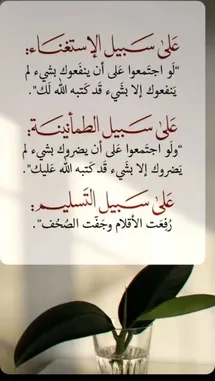 عَلىٰ سَبيل الإستغنَـاء:
"لَو اجتَمعوا عَلى أن ينفَعوك بشَيء لم
يَنفعوك إلا بشَيء قَد كَتبه الله لَك".
عَلىٰ سَبيل الطمأنينَـة:
"ولَو اجتَمعوا عَلى أن يضروك بشَيء لم
يَضروك إلا بشَيء قَد كَتبه الله عَليك".
عَلىٰ سَبيل التَسليـم:
رُفِعَت الأقلام وجَفّت الصُحُف".